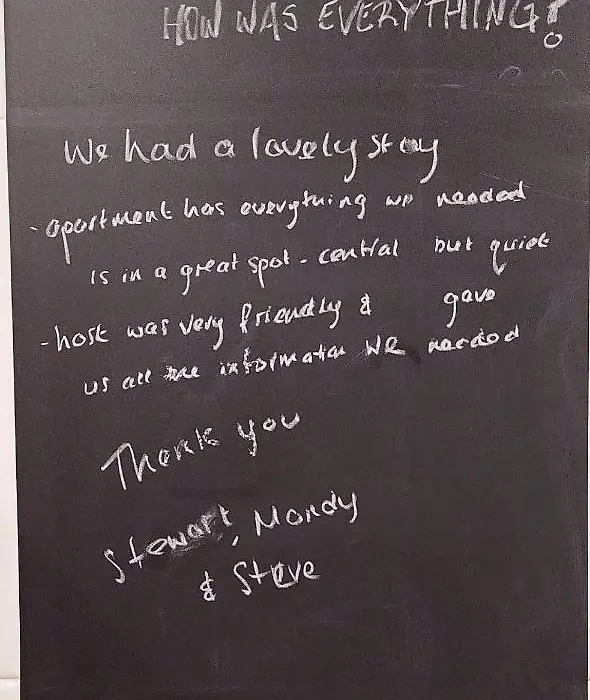 HOW WAS EVERYTHING?
We had a lovely stay
- apartment has everything we needed
is in a great spot - central but quiet
- host was very friendly & gave
us all the information we needed
Thank you
Stewart, Mandy
& Steve